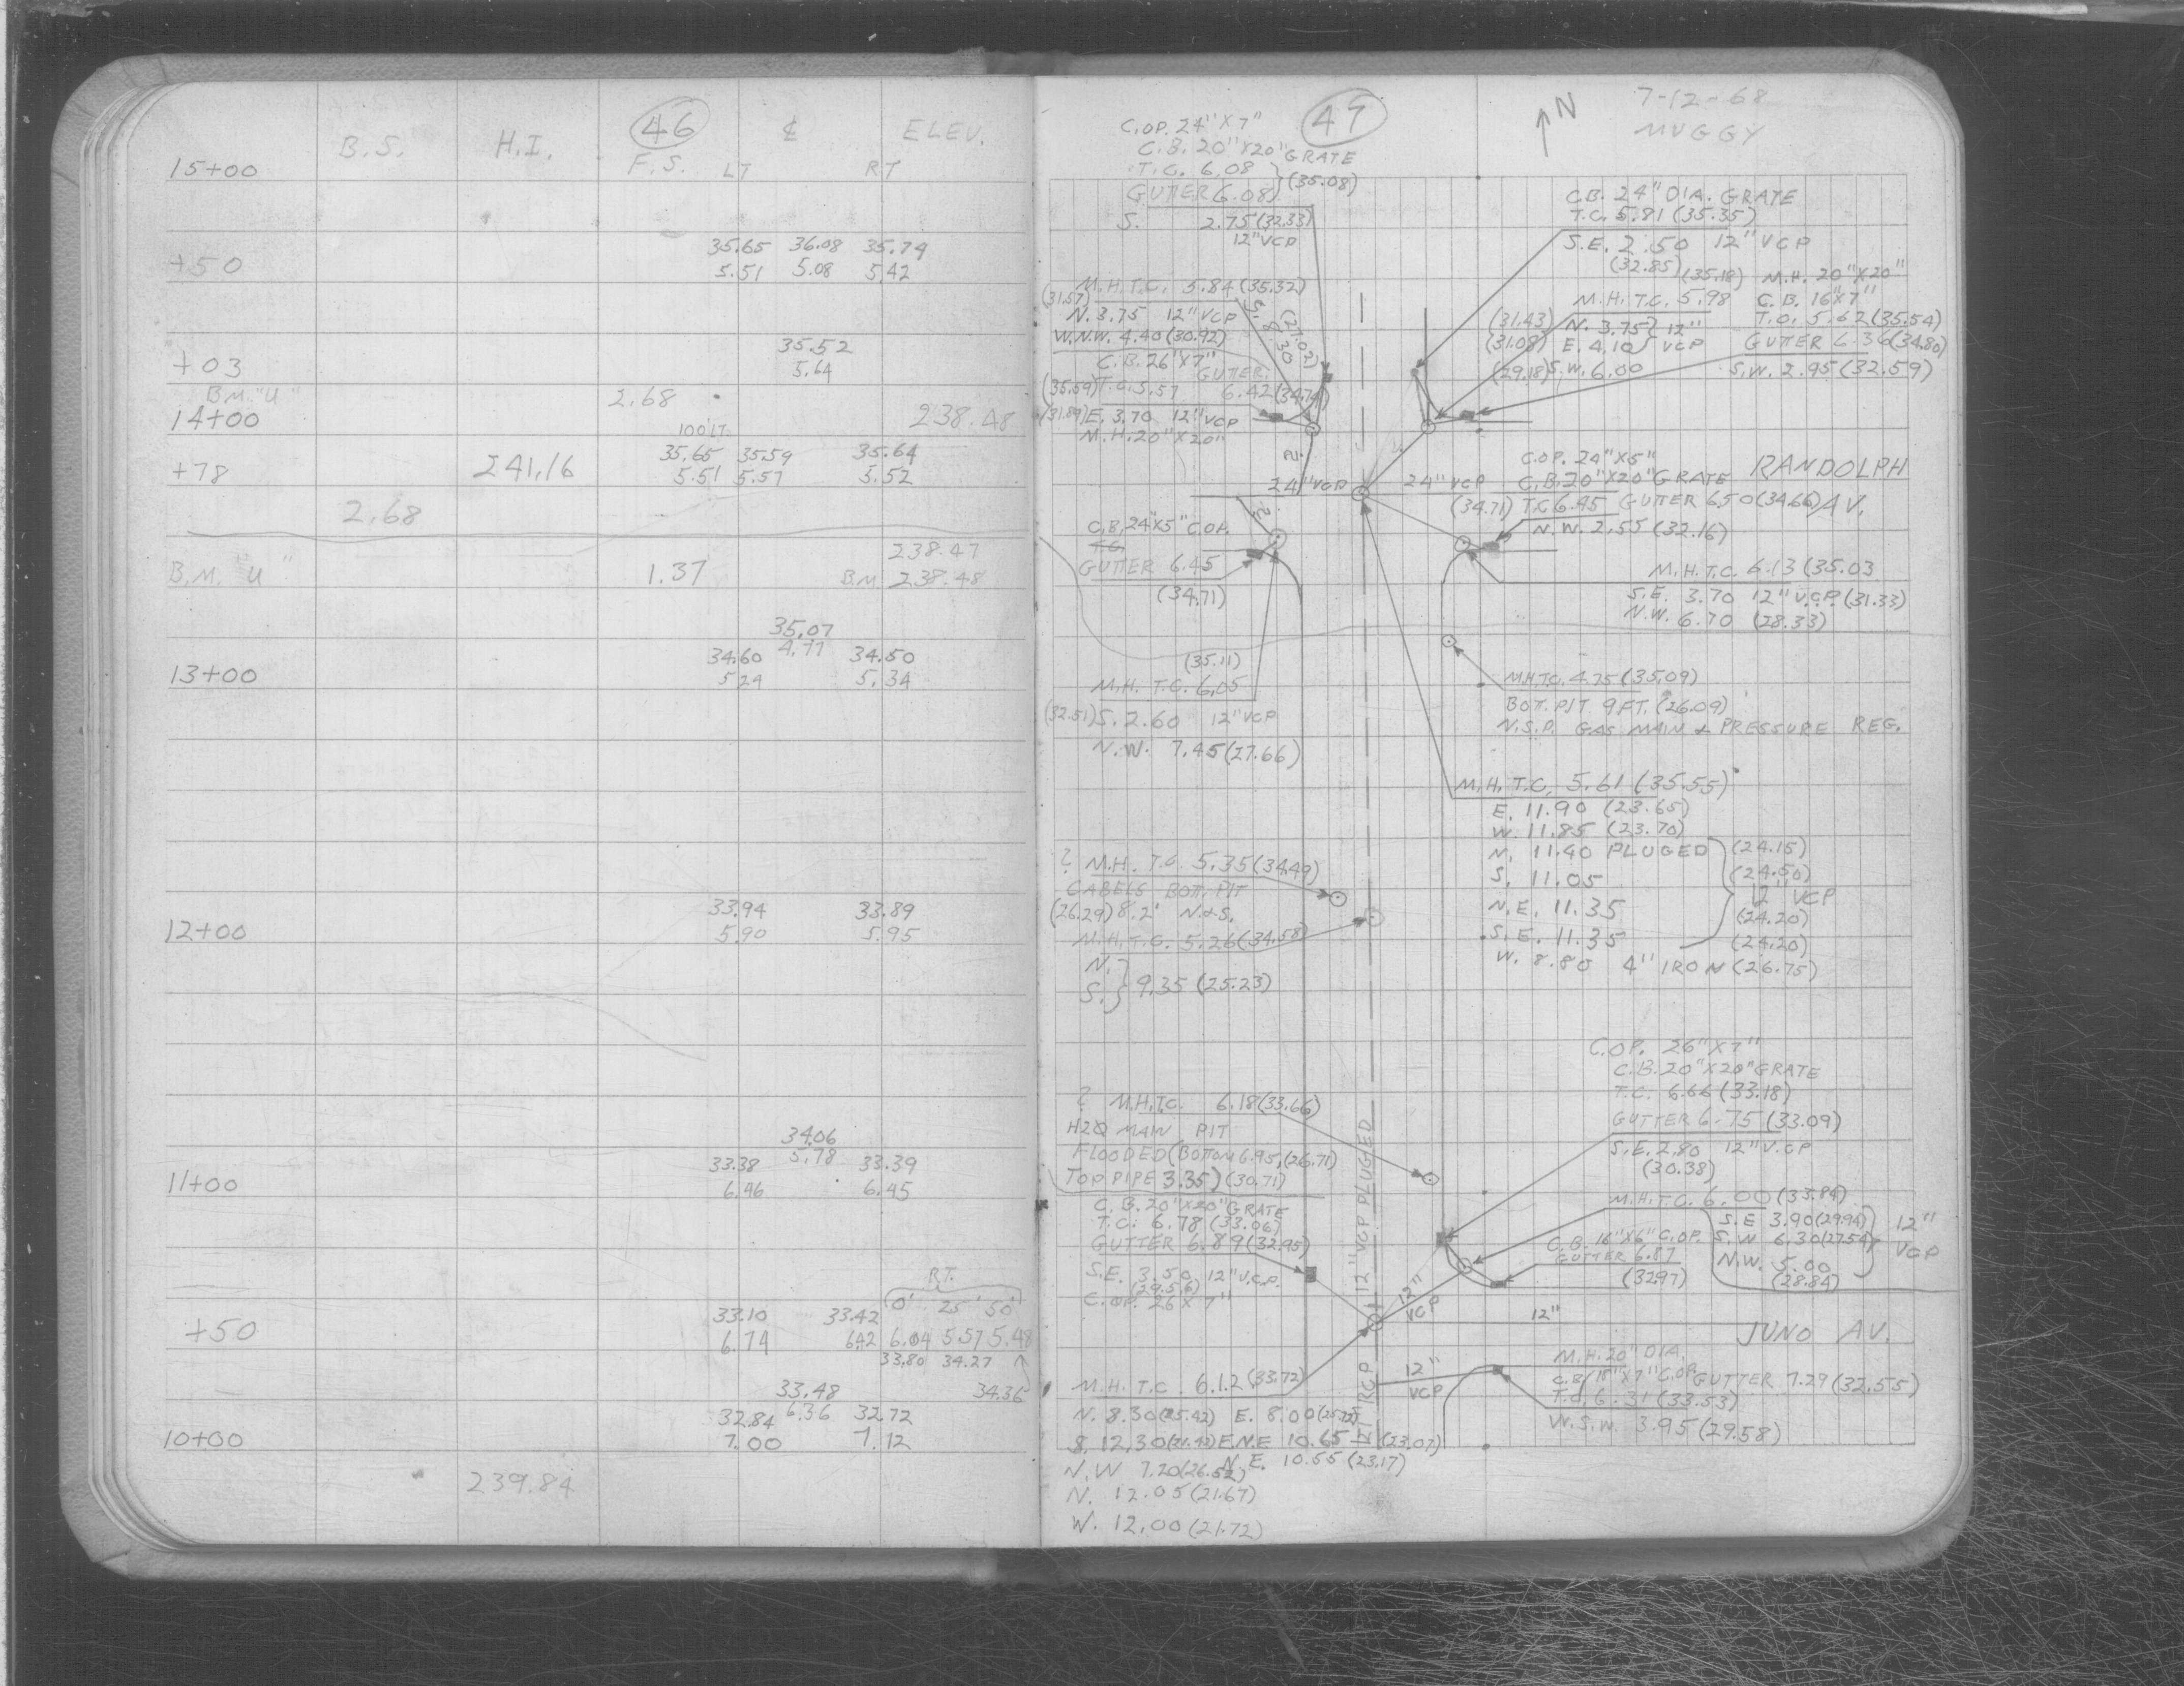 46
B.S. H.I. F.S. LT ℄ RT ELEV.
15+00
35.65 36.08 35.74
+50 5.51 5.08 5.42
35.52
+03 5.64
B.M. "U" 2.68
14+00 238.48
100' LT
35.65 35.59 35.64
+78 241.16 5.51 5.57 5.52
2.68
238.47
B.M. "U" 1.37 B.M. 238.48
35.07
34.60 4.77 34.50
13+00 5.24 5.34
33.94 33.89
12+00 5.90 5.95
34.06
33.38 5.78 33.39
11+00 6.46 6.45
RT.
33.10 33.42 0' 25' 50'
+50 6.74 6.42 6.04 5.57 5.48
33.80 34.27
33.48 34.36
32.84 6.36 32.72
10+00 7.00 7.12
239.84
47
N
7-12-68
MUGGY
C.OP. 24"X7"
C.B. 20"X20" GRATE
T.C. 6.08
GUTTER 6.08 (35.08)
S. 2.75 (32.33)
12" VCP
M.H. T.C. 5.84 (35.32)
(31.57) N. 3.75 12" VCP
W.N.W. 4.40 (30.92)
S. 8.30 (27.02)
C.B. 26"X7"
GUTTER
(35.59) T.C. 5.57 6.42 (34.74)
(31.89) E. 3.70 12" VCP
M.H. 20"X20"
C.B. 24" DIA. GRATE
T.C. 5.81 (35.35)
S.E. 2.50 12" VCP
(32.85)
(35.18)
M.H. T.C. 5.98
(31.43) N. 3.75 12"
(31.08) E. 4.10 VCP
(29.18) S.W. 6.00
M.H. 20"X20"
C.B. 16"X7"
T.C. 5.62 (35.54)
GUTTER 6.36 (34.80)
S.W. 2.95 (32.59)
?
24" VCP 24" VCP
RANDOLPH AV.
C.OP. 24"X5"
C.B. 20"X20" GRATE
(34.71) T.C. 6.45 GUTTER 6.50 (34.66)
N.W. 2.55 (32.16)
?
C.B. 24"X5" C.OP.
T.C.
GUTTER 6.45
(34.71)
M.H. T.C. 6.13 (35.03
S.E. 3.70 12" V.C.P. (31.33)
N.W. 6.70 (28.33)
(35.11)
M.H. T.C. 6.05
(32.51) S. 2.60 12" VCP
N.W. 7.45 (27.66)
M.H. T.C. 4.75 (35.09)
BOT. PIT 9 FT. (26.09)
N.S.P. GAS MAIN & PRESSURE REG.
M.H. T.C. 5.61 (35.55)
E. 11.90 (23.65)
W. 11.85 (23.70)
N. 11.40 PLUGED (24.15)
S. 11.05 (24.50)
12" VCP
N.E. 11.35 (24.20)
S.E. 11.35 (24.20)
W. 8.80 4" IRON (26.75)
? M.H. T.C. 5.35 (34.49)
CABELS BOTT. PIT
(26.29) 8.2' N.&S.
M.H. T.C. 5.26 (34.58)
N.
S. 9.35 (25.23)
C.OP. 26"X7"
C.B. 20"X20" GRATE
T.C. 6.66 (33.18)
GUTTER 6.75 (33.09)
S.E. 2.80 12" V.CP
(30.38)
? M.H.T.C. 6.18 (33.66)
H2O MAIN PIT
FLOODED (BOTTOM 6.95, (26.71)
TOP PIPE 3.35) (30.71)
12" VCP PLUGED
M.H. T.C. 6.00 (33.84)
S.E. 3.90 (29.94)
S.W. 6.30 (27.54)
N.W. 5.00
(28.84)
12" VCP
C.B. 16"X6" C.OP.
GUTTER 6.87
(32.97)
C.B. 20"X20" GRATE
T.C. 6.78 (33.06)
GUTTER 6.89 (32.95)
S.E. 3.50 12" V.C.P.
C.OP. 26 X 7"
12" VCP
12"
JUNO AV.
12" VCP
RCP
M.H. 20" DIA.
T.C. 6.31 (33.53)
GUTTER 7.29 (32.55)
W.S.W. 3.95 (29.58)
M.H. T.C. 6.12 (33.72)
N. 8.30 (25.42) E. 8.00
S. 12.30 (21.42) E.N.E 10.65 (23.07)
N.W 7.20 (26.52) N.E. 10.55 (23.17)
N. 12.05 (21.67)
W. 12.00 (21.72)